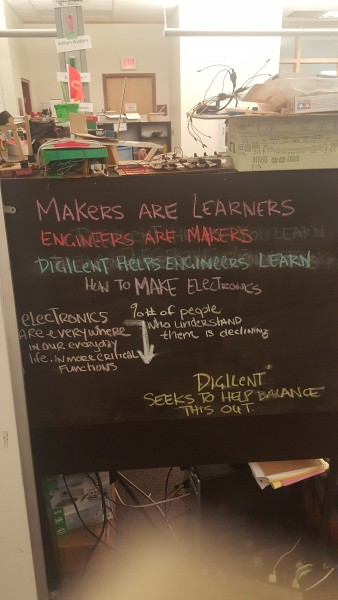 MAKERS ARE LEARNERS
ENGINEERS ARE MAKERS
DIGILENT HELPS ENGINEERS LEARN
HOW TO MAKE ELECTRONICS
electronics
are everywhere
in our everyday
life. in more critical
functions
% # of people
who understand
them is declining
DIGILENT
SEEKS TO HELP BALANCE
THIS OUT.